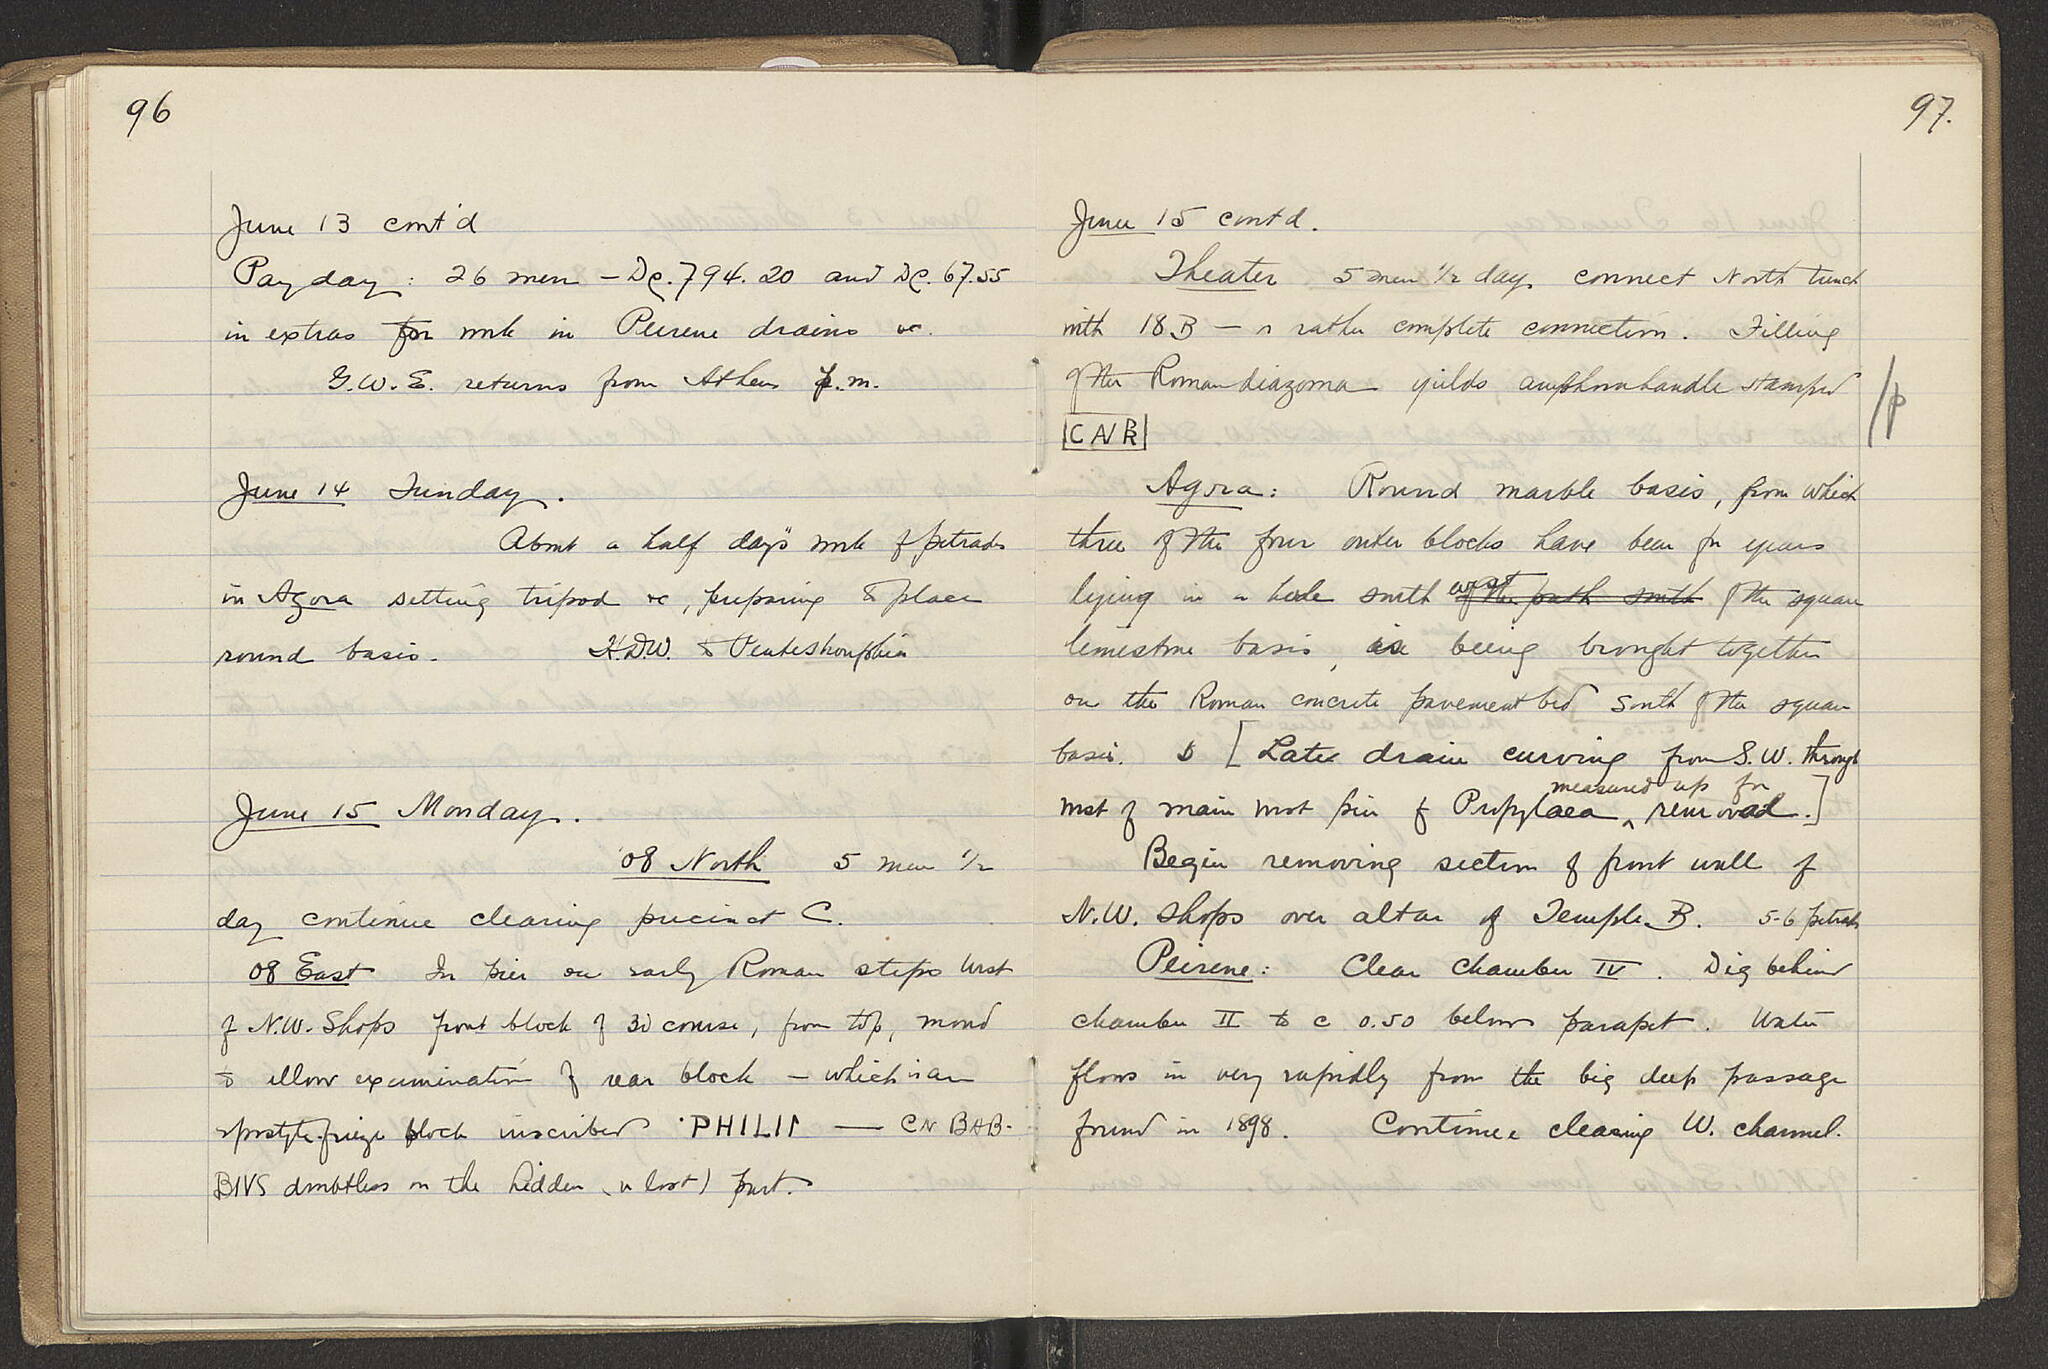 96
June 13 cont'd
Pay day: 26 men — Dr. 794.20 and Dr. 67.55
in extras for work in Peirene drains &c.
G.W.E. returns from Athens p.m.
June 14 Sunday.
About a half day's work of petrads
in Agora setting tripod &c, preparing to place
round basis. H.D.W. to
June 15 Monday.
'08 North 5 men 1/2
day continue clearing precinct C.
08 East In pier on early Roman steps West
of N.W. Shops front block of 3d course, from top, moved
to allow examination of rear block — which is an
epistyle-frieze block inscribed ·PHILIP — CN BAB-
BIVS doubtless on the hidden (or lost) part.
97.
June 15 cont'd.
Theater 5 men 1/2 day, connect North trench
with 18 B — a rather complete connection. Filling
of the Roman diazoma yields amphora handle stamped
/p
Agora: Round marble basis, from which
three of the four outer blocks have been for years
lying in a hole south west of the path south of the square
limestone basis, is being brought together
on the Roman concrete pavement bed south of the square
basis. [Later drain curving from S.W. through
west of main west pier of Propylaea ^ measured up for removal.]
Begin removing section of front wall of
N.W. Shops over altar of Temple B. 5-6 petrads
Peirene: Clear chamber IV. Dig behind
chamber II to c 0.50 below parapet. Water
flows in very rapidly from the big deep passage
found in 1898. Continue clearing W. channel.